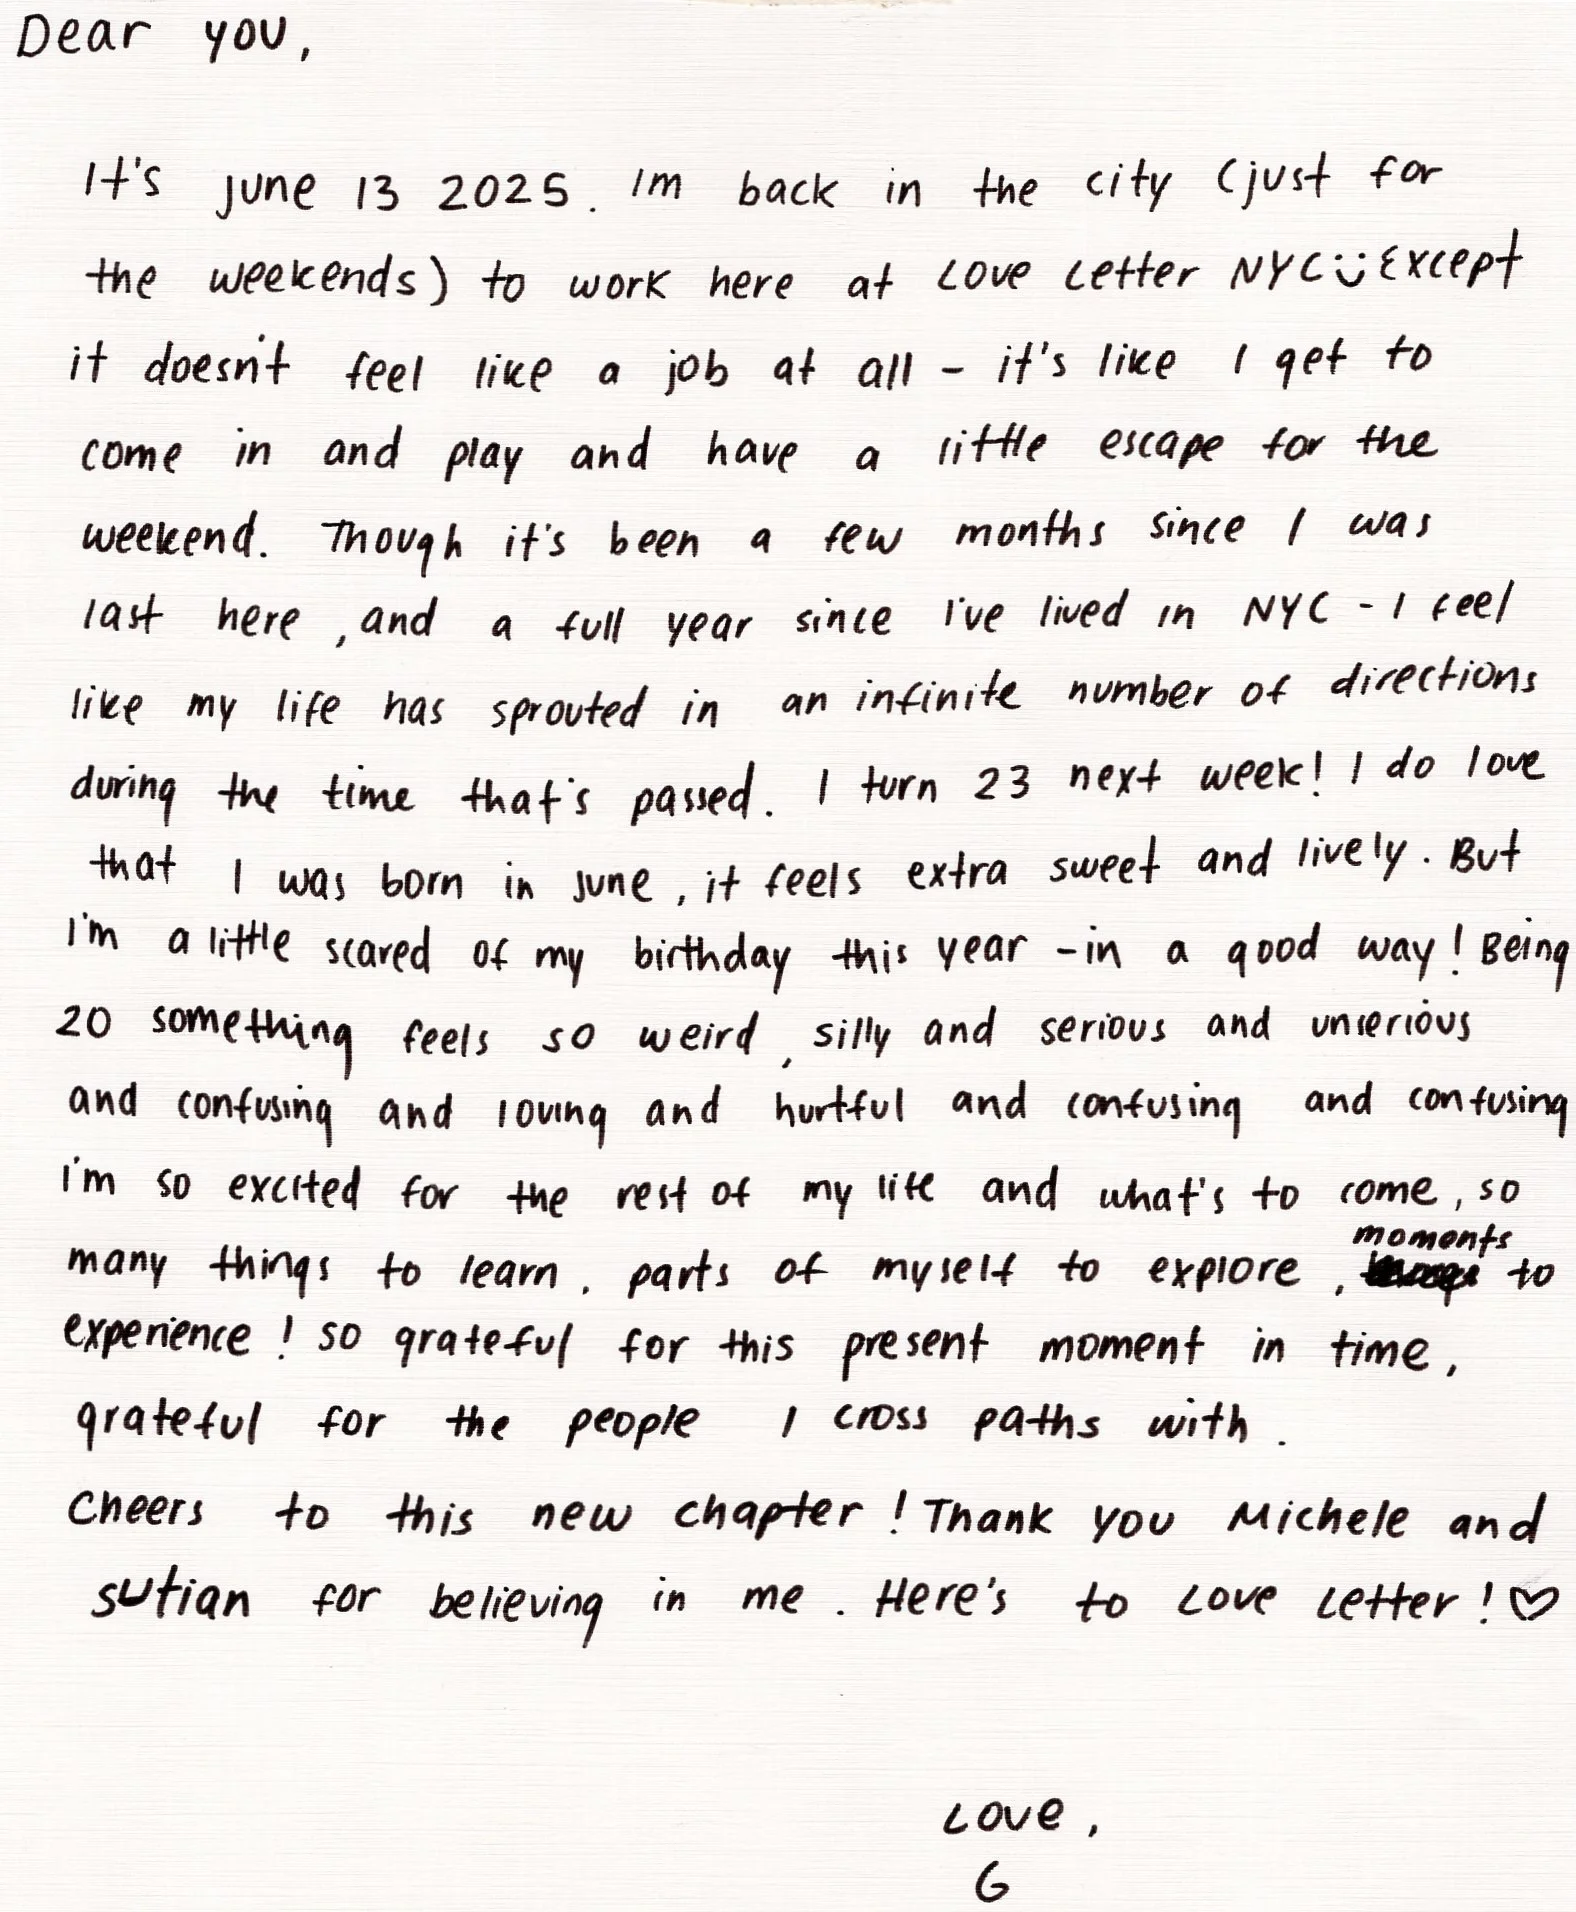 Dear you,
It's june 13 2025. Im back in the city (just for
the weekends) to work here at Love Letter NYC :) Except
it doesn't feel like a job at all - it's like I get to
come in and play and have a little escape for the
weekend. Though it's been a few months since I was
last here, and a full year since I've lived in NYC - I feel
like my life has sprouted in an infinite number of directions
during the time that's passed. I turn 23 next week! I do love
that I was born in june, it feels extra sweet and lively. But
I'm a little scared of my birthday this year - in a good way! Being
20 something feels so weird, silly and serious and unserious
and confusing and loving and hurtful and confusing and confusing
I'm so excited for the rest of my life and what's to come, so
many things to learn, parts of myself to explore, moments to
experience! so grateful for this present moment in time,
grateful for the people I cross paths with.
Cheers to this new chapter! Thank you Michele and
sutian for believing in me. Here's to Love Letter! ♡
Love,
G